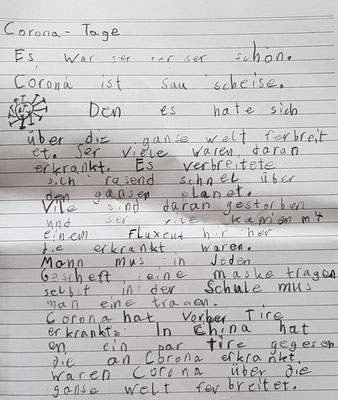 Corona - Tage
Es war ser ser ser schön.
Corona ist sau scheise.
Den es hate sich
über die ganse welt ferbreit
et. Ser viele waren daran
erkrankt. Es verbreitete
sich rasend schnel über
den gansen planet.
Vile sind daran gestorben
und ser vile kamen mit
einem Fluxcut hir her
die erkrankt waren.
Mann mus in jeden
Gescheft eine maske tragen
selbst in der Schule mus
man eine tragen.
Corona hat vorher Tire
erkrankt. In China hat
en ein par Tire gegesen
die an Corona erkrankt.
waren Corona über die
ganse welt ferbreitet.